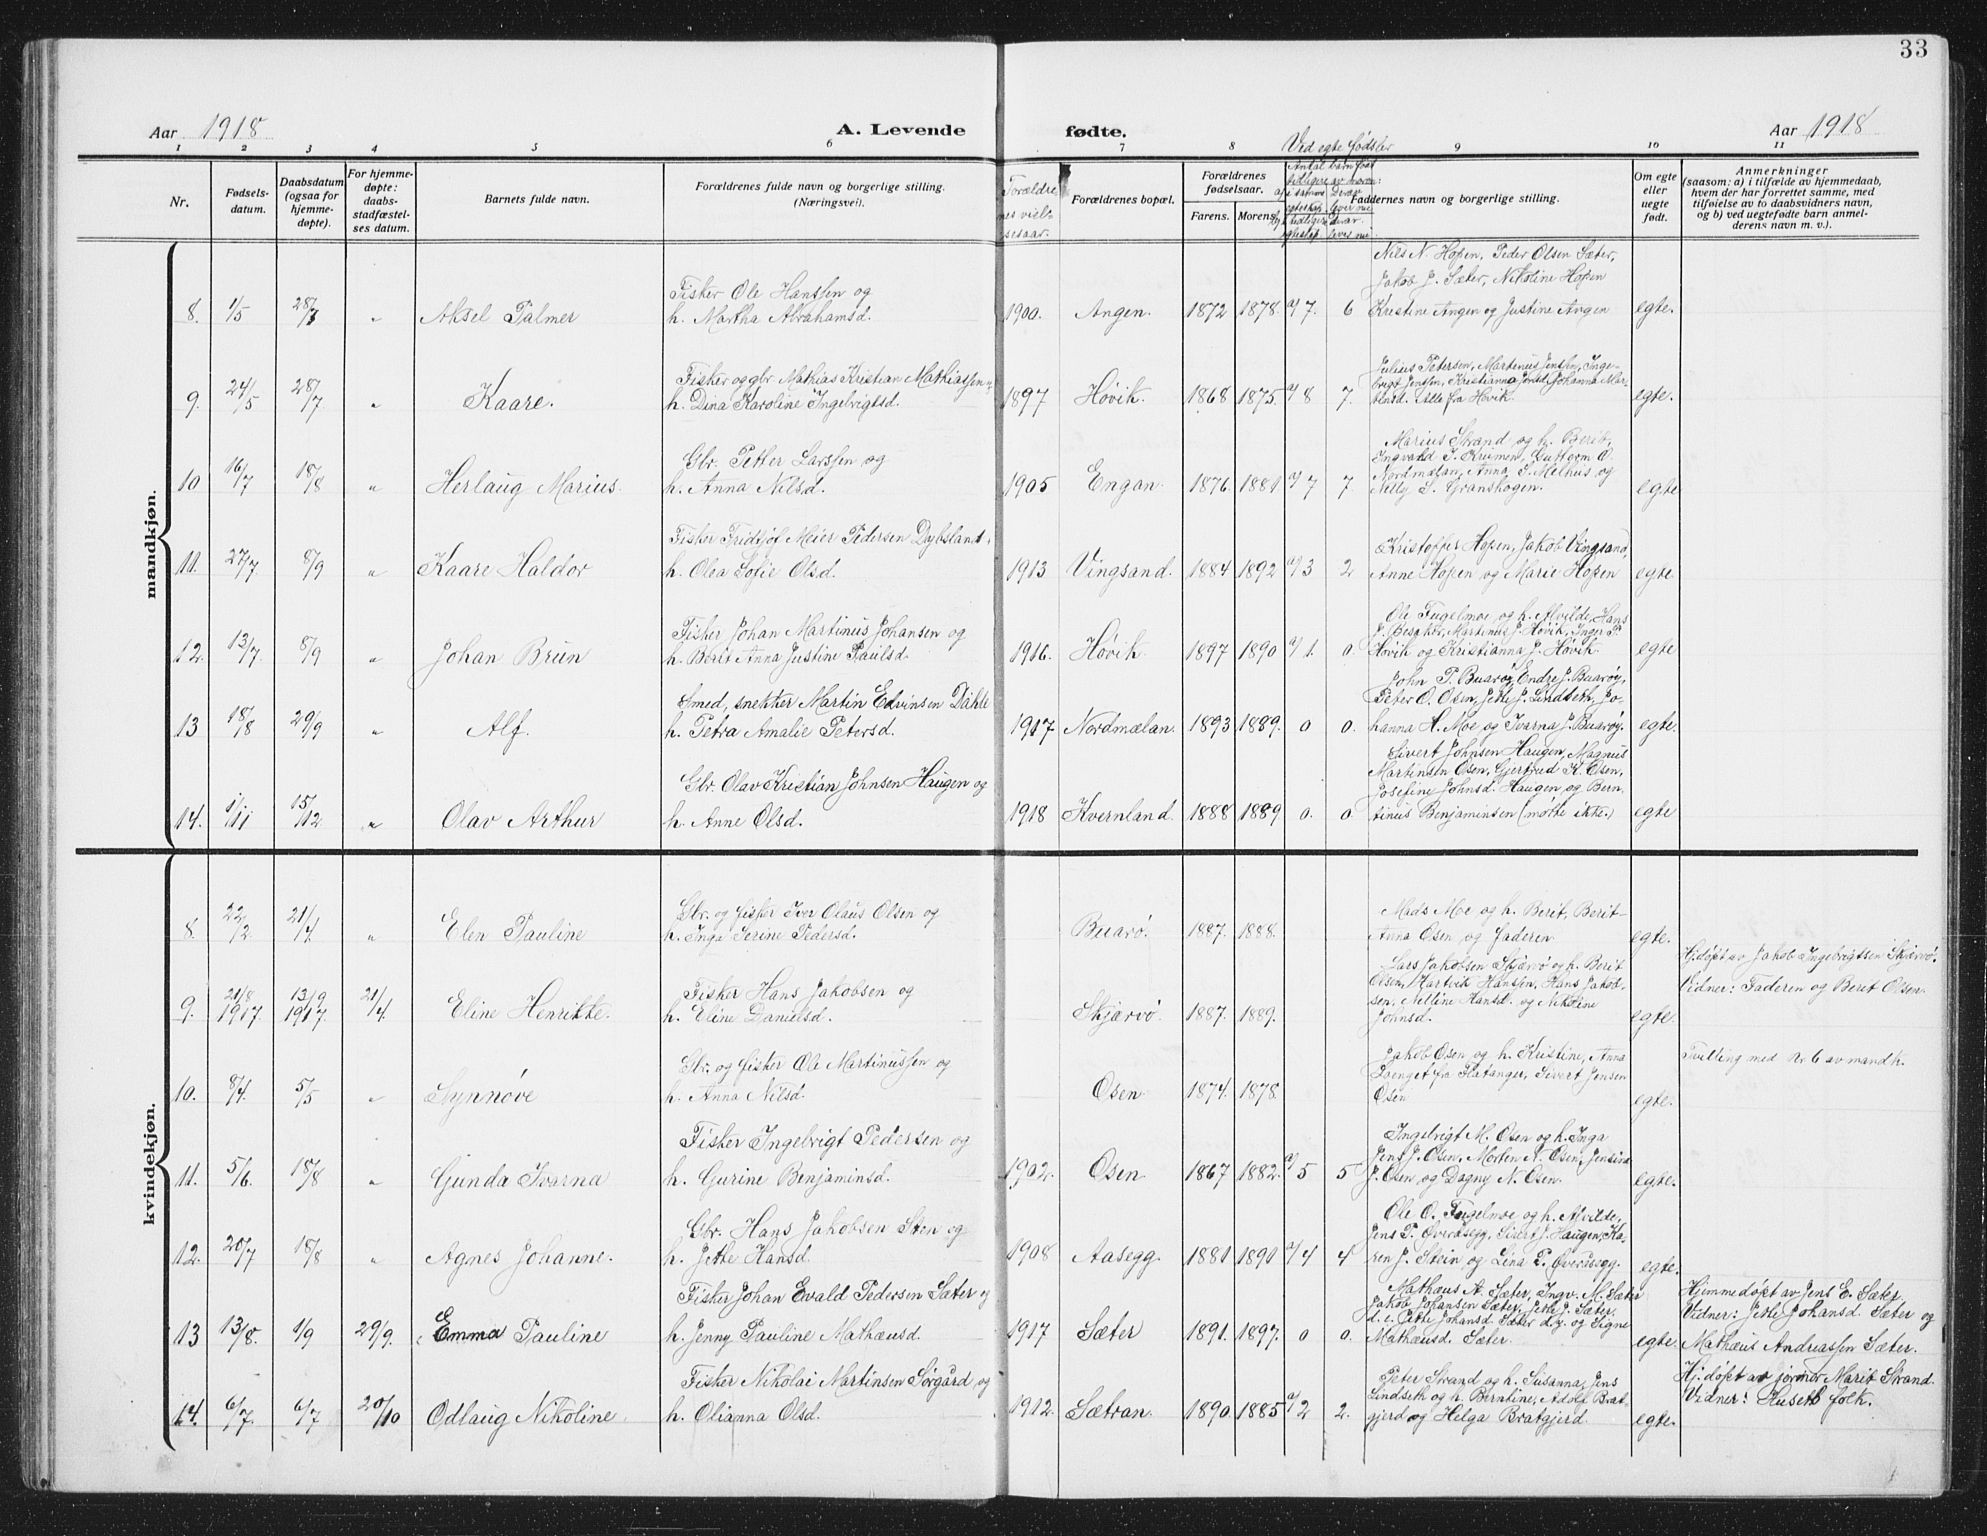 33
Aar 1918 A. Levende fødte. Aar 1918
1 2 3 4 5 6 7 8 9 10 11
Ved egte fødsler
Nr.
Fødsels-
datum.
Daabsdatum
(ogsaa for
hjemme-
døpte).
For hjemme-
døpte:
daabs-
stadfæstel-
ses datum.
Barnets fulde navn.
Forældrenes fulde navn og borgerlige stilling.
(Næringsvei).
Forældre
nes viel-
sesaar.
Forældrenes bopæl.
Forældrenes
fødselsaar.
Farens. Morens.
Antal barn født
tidligere av moren:
a) i samme egteskap. Derav lever nu
b) tidligere egteskap. Derav lever nu.
Faddernes navn og borgerlige stilling.
Om egte
eller
uegte
født.
Anmerkninger
(saasom: a) i tilfælde av hjemmedaab,
hvem der har forrettet samme, med
tilføielse av to daabsvidners navn,
og b) ved uegtefødte barn anmel-
derens navn m. v.).
mandkjøn.
Nils N. Hopen, Peder Olsen Sæter,
Jakob J. Sæter, Nikoline Hopen
Fisker Ole Hanssen og
8. 1/5 28/7 " Aksel Palmer h. Martha Abrahamsd. 1900. Angen. 1872 1878. a) 7. 6 Kristine Angen og Justine Angen egte.
Julius Petersen, Martenius Jenssen, Inge-
Fisker og gbr Mathias Kristian Mathiassen og
brigt Jenssen, Kristianna Jensd, Johanna Mar-
9. 24/5 28/7 " Kaare. h. Dina Karoline Ingebrigtsd. 1897 Høvik. 1868 1875. a) 8 7. tensd. Alle fra Høvik. egte.
Marius Strand og h. Berit,
Gbr. Petter Larssen og
Ingvald J. Krumen, Guttorm O.
Nordmælan, Anna J. Melhus og
10 16/7 18/8 " Herlaug Marius. h. Anna Nilsd. 1905 Engan. 1876. 1881 a) 7 7. Nelly L. Granshogen. egte
Fisker Fridtjof Meier Pedersen Dybsland.
Kristoffer Hopen, Jakob Vingsand,
11. 27/7. 8/9 " Kaare Haldor h. Olea Sofie Olsd. 1913 Vingsand. 1884 1892 a) 3 2 Anne Hopen og Marie Hopen egte
Ole Fugelmoe og h. Alvilde, Hans
Fisker Johan Martinus Johansen og
J. Besaker, Martinus J. Høvik, Inger P.
12. 13/7. 8/9 " Johan Brun h. Berit Anna Justine Paulsd. 1916. Høvik 1897 1890 a) 1. 0. Høvik og Kristianna J. Høvik. egte
John P. Buarøy, Endre J. Buarøy,
Smed, snekker Martin Edvinsen Dahle
Peter O. Osen, Jette J. Lindseth, Jo-
13 18/8 29/9 " Alf. h. Petra Amalie Petersd. 1917 Nordmælan. 1893 1889. 0 0. hanna A. Moe og Ivarna J. Buarøy. egte.
Sivert Johnsen Haugen, Magnus
Martinsen Osen, Gjertrud K. Osen,
Gbr. Olav Kristian Johnsen Haugen og
Josefine Johnsd. Haugen og Bern-
14. 1/11 15/12 " Olav Arthur h. Anne Olsd. 1918 Kvernland. 1888 1889 0. 0. tinus Benjaminsen (møtte ikke.) egte
kvindekjøn.
Gbr. og fisker Iver Olaus Olsen og
Mads Moe og h. Berit, Berit-
8. 22/2 21/4. " Elen Pauline h. Inga Serine Pedersd. Buarø. 1887. 1888. Anna Osen og faderen. egte.
Hjdøpt av Jakob Ingebrigtsen Skjærvø.
Lars Jakobsen Skjærvø og h. Berit
Fisker Hans Jakobsen og
Olsen, Hartvik Hanssen, Hans Jakob-
Vidner: Faderen og Beret Olsen.
sen, Nelline Hansd. og Nikoline
9. 21/8 1917. 13/9 1917 21/4. Eline Henrikke. h. Eline Danielsd. Skjærvø. 1887. 1889. Johnsd. egte.
Gbr. og fisker Ole Martinussen og
Jakob Osen og h. Kristine, Anna
Tvilling med nr 6 av mandk.
Loenget fra Flatanger, Sivert Jensen
10. 8/4. 5/5 " Synnøve h. Anna Nilsd. Osen. 1874. 1878. Osen egte.
Fisker Ingebrigt Pedersen og
Ingebrigt M. Osen og h. Inga
Jens J. Osen, Morten N. Osen, Jensina
11. 5/6. 18/8 " Gunda Ivarna h. Gurine Benjaminsd. 1902. Osen 1867 1882. a) 5 5 J. Osen og Dagny N. Osen. egte.
Gbr. Hans Jakobsen Sten og
Ole O. Fugelmoe og h. Alvilde,
Jens P. Øveraasegg, Sivert J. Haugen, Ka-
12. 20/7 18/8 " Agnes Johanne. h. Jette Hansd. 1908 Aasegg. 1881 1891 a) 4 4 ren J. Stein og Lina P. Øveraasegg. egte.
Fisker Johan Ewald Pedersen Sæter og
Mathæus A. Sæter, Ingv. M. Sæter
Jakob Johansen Sæter, Jette J. Sæter,
Hjemmedøpt av Jens E. Sæter
d. e. Jette Johansd. Sæter d.y. og Signe
Vidner: Jette Johansd. Sæter og
13 13/8. 1/9 29/9. Emma Pauline h. Jenny Pauline Mathæusd. 1917 Sæter 1891. 1897. 0 0. Mathæusd. Sæter. egte. Mathæus Andreassen Sæter.
Fisker Nikolai Martinsen Sørgård og
Peter Strand og h. Susanna, Jens
Hjdøpt av jormor Marit Strand.
Lindseth og h. Berntine, Adolf Brat-
Vidner: Husets folk.
14. 6/7. 6/7 20/10 Odlaug Nikoline. h. Olianna Olsd. 1912. Sætran. 1890. 1885 a) 2 2. gjerd og Helga Bratgjerd. egte.